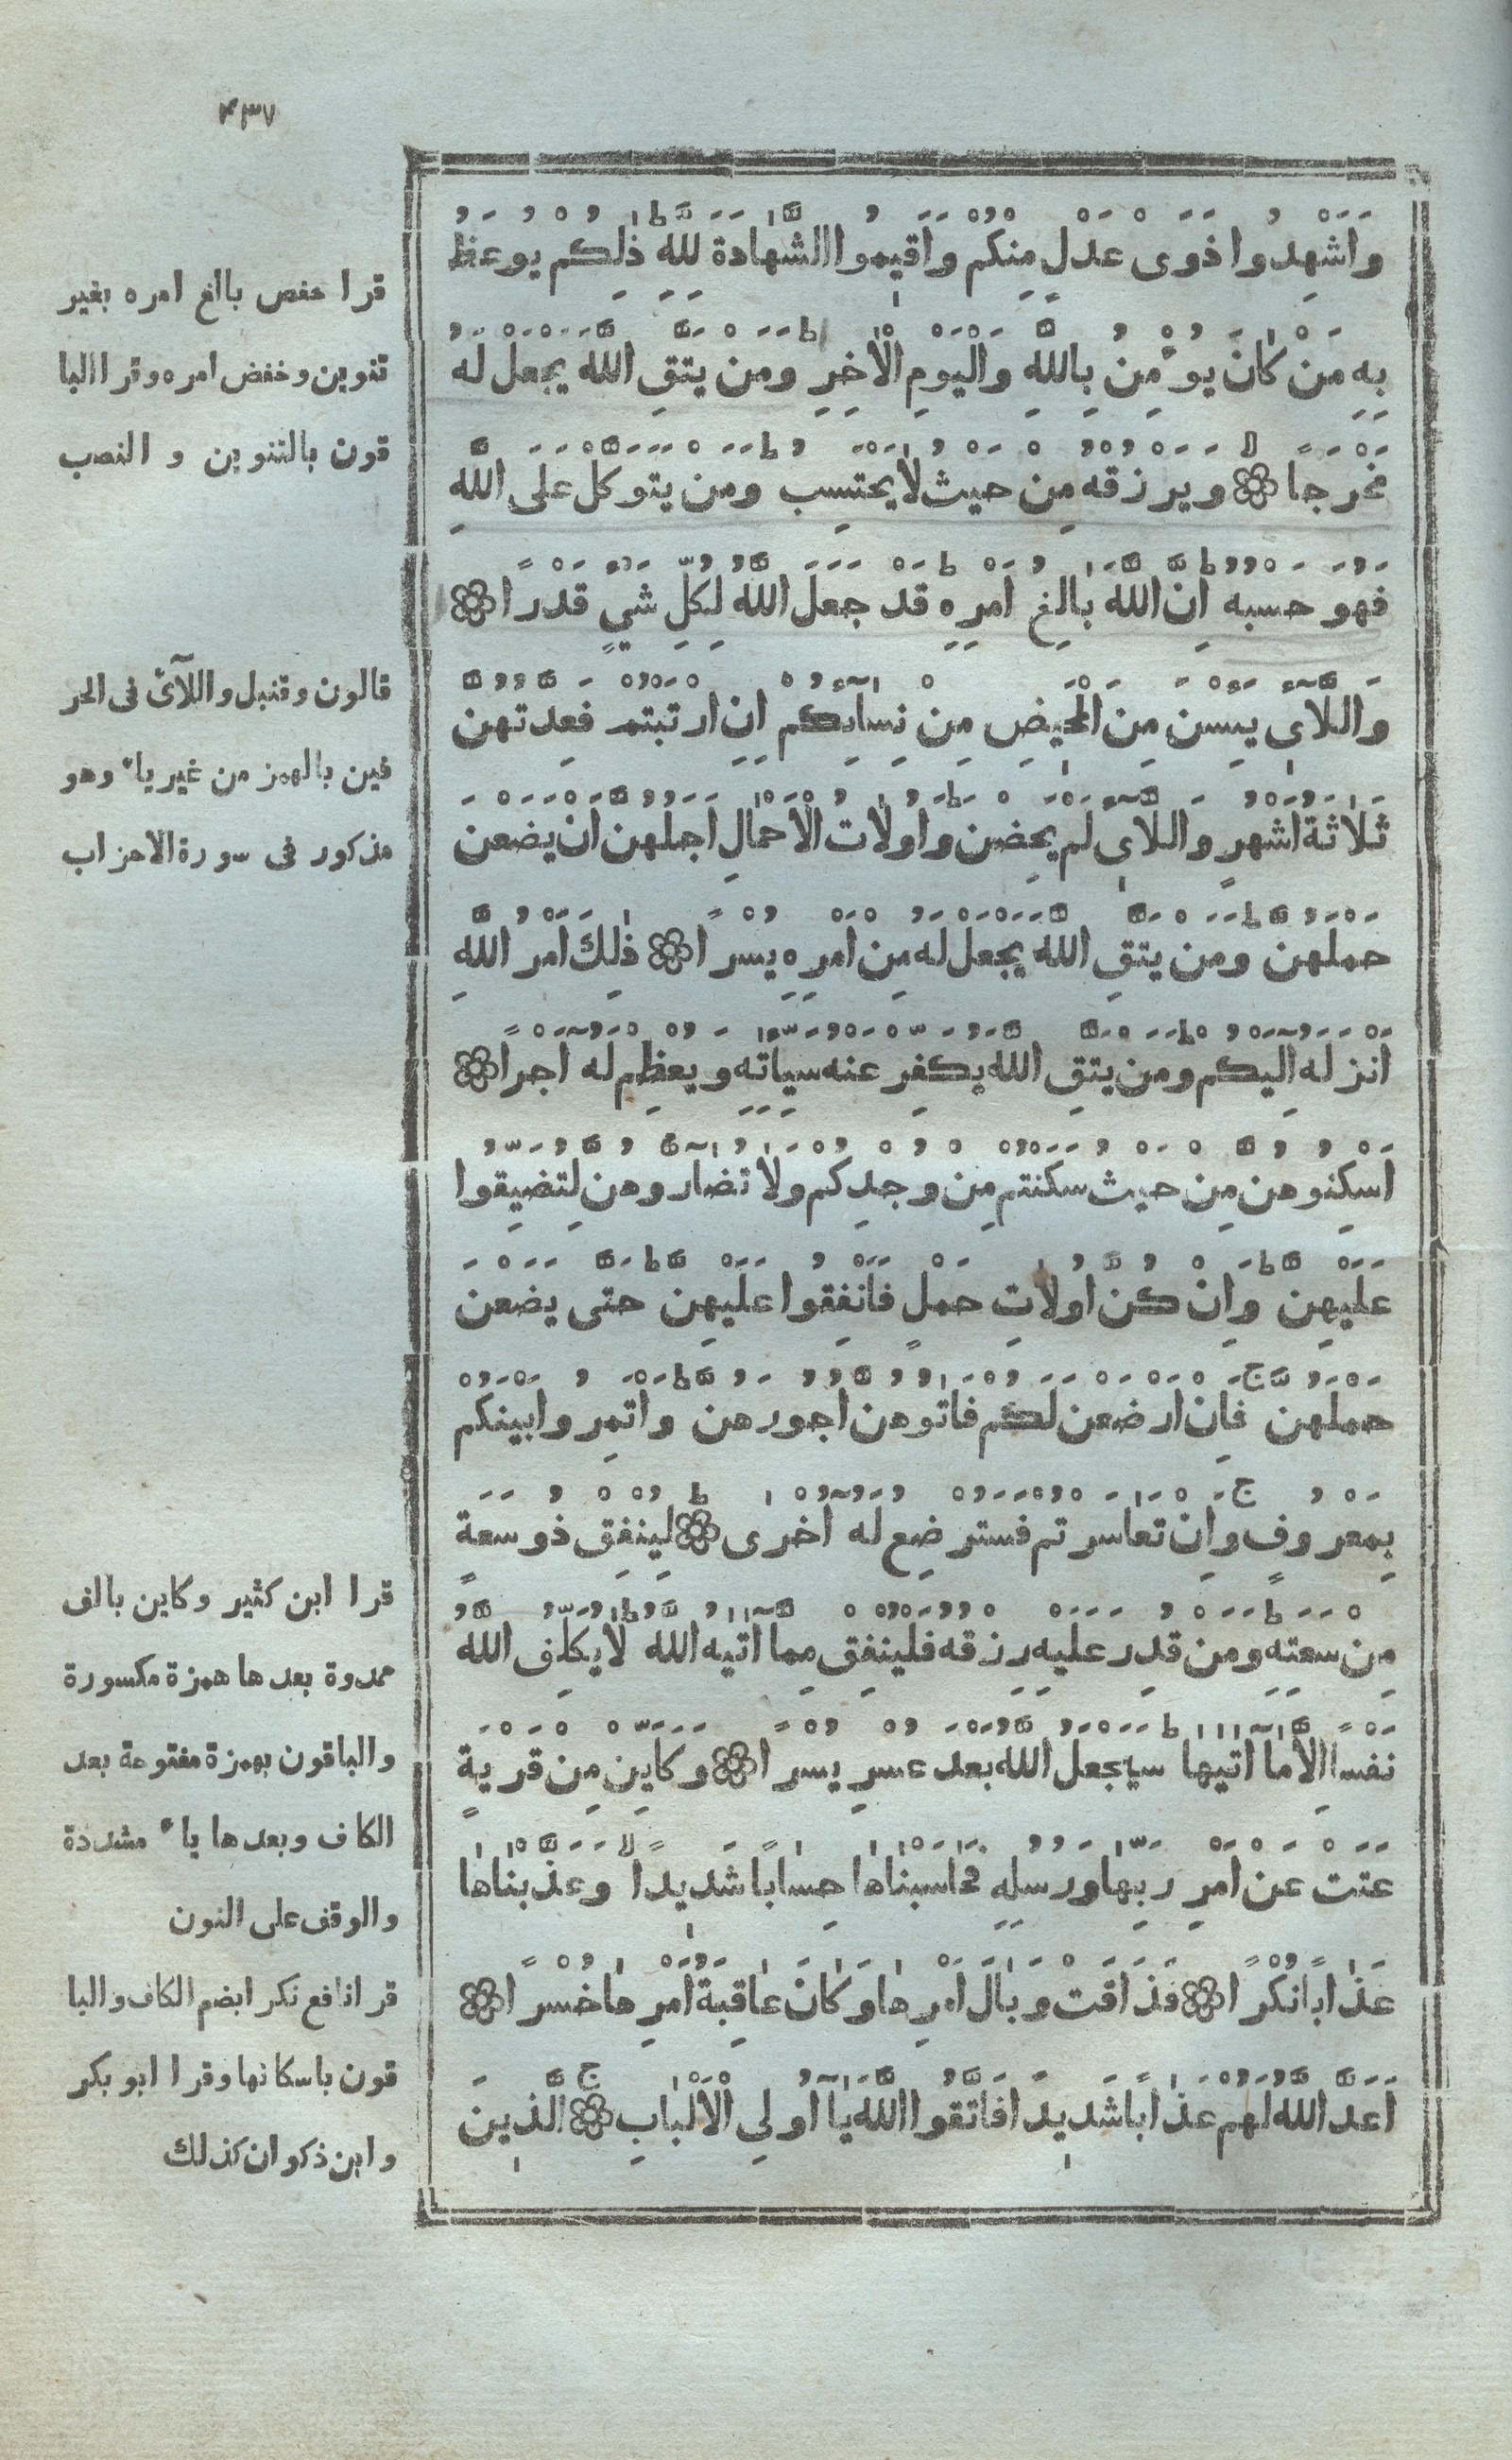 ۴۳۷
وَاَشْهِدُوا ذَوَىْ عَدْلٍ مِنْكُمْ وَاَقِيمُوا الشَّهَادَةَ لِلّٰهِ ذٰلِكُمْ يُوعَظُ
بِهِ مَنْ كَانَ يُؤْمِنُ بِاللّٰهِ وَالْيَوْمِ الْاٰخِرِ ط وَمَنْ يَتَّقِ اللّٰهَ يَجْعَلْ لَهُ
مَخْرَجًا ۞ وَيَرْزُقْهُ مِنْ حَيْثُ لَا يَحْتَسِبُ ط وَمَنْ يَتَوَكَّلْ عَلَى اللّٰهِ
فَهُوَ حَسْبُهُ ط اِنَّ اللّٰهَ بَالِغُ اَمْرِهِ ط قَدْ جَعَلَ اللّٰهُ لِكُلِّ شَىْءٍ قَدْرًا ۞
وَاللَّآئِ يَئِسْنَ مِنَ الْمَحِيضِ مِنْ نِسَآئِكُمْ اِنِ ارْتَبْتُمْ فَعِدَّتُهُنَّ
ثَلَاثَةُ اَشْهُرٍ وَاللَّآئِ لَمْ يَحِضْنَ ط وَاُولَاتُ الْاَحْمَالِ اَجَلُهُنَّ اَنْ يَضَعْنَ
حَمْلَهُنَّ ط وَمَنْ يَتَّقِ اللّٰهَ يَجْعَلْ لَهُ مِنْ اَمْرِهِ يُسْرًا ۞ ذٰلِكَ اَمْرُ اللّٰهِ
اَنْزَلَهُ اِلَيْكُمْ ط وَمَنْ يَتَّقِ اللّٰهَ يُكَفِّرْ عَنْهُ سَيِّاٰتِهِ وَيُعْظِمْ لَهُ اَجْرًا ۞
اَسْكِنُوهُنَّ مِنْ حَيْثُ سَكَنْتُمْ مِنْ وُجْدِكُمْ وَلَا تُضَآرُّوهُنَّ لِتُضَيِّقُوا
عَلَيْهِنَّ ط وَاِنْ كُنَّ اُولَاتِ حَمْلٍ فَاَنْفِقُوا عَلَيْهِنَّ حَتّٰى يَضَعْنَ
حَمْلَهُنَّ ج فَاِنْ اَرْضَعْنَ لَكُمْ فَاٰتُوهُنَّ اُجُورَهُنَّ ط وَاْتَمِرُوا بَيْنَكُمْ
بِمَعْرُوفٍ ج وَاِنْ تَعَاسَرْتُمْ فَسَتُرْضِعُ لَهُ اُخْرٰى ۞ لِيُنْفِقْ ذُو سَعَةٍ
مِنْ سَعَتِهِ ط وَمَنْ قُدِرَ عَلَيْهِ رِزْقُهُ فَلْيُنْفِقْ مِمَّا اٰتٰيهُ اللّٰهُ ط لَا يُكَلِّفُ اللّٰهُ
نَفْسًا اِلَّا مَا اٰتٰيهَا ط سَيَجْعَلُ اللّٰهُ بَعْدَ عُسْرٍ يُسْرًا ۞ وَكَاَيِّنْ مِنْ قَرْيَةٍ
عَتَتْ عَنْ اَمْرِ رَبِّهَا وَرُسُلِهِ فَحَاسَبْنَاهَا حِسَابًا شَدِيدًا لا وَعَذَّبْنَاهَا
عَذَابًا نُكْرًا ۞ فَذَاقَتْ وَبَالَ اَمْرِهَا وَكَانَ عَاقِبَةُ اَمْرِهَا خُسْرًا ۞
اَعَدَّ اللّٰهُ لَهُمْ عَذَابًا شَدِيدًا فَاتَّقُوا اللّٰهَ يَا اُولِى الْاَلْبَابِ ج ۞ الَّذِينَ
قرا حفص بالغ امره بغير
تنوين وخفض امره وقرا البا
قون بالتنوين و النصب
قالون وقنبل واللآئ فى الحر
فين بالهمز من غير ياء وهو
مذكور فى سورة الاحزاب
قرا ابن كثير وكاين بالف
ممدوة بعدها همزة مكسورة
والباقون بهمزة مفتوحة بعد
الكاف وبعدها ياء مشددة
والوقف على النون
قرا نافع نكرا بضم الكاف والبا
قون باسكانها وقرا ابو بكر
وابن ذكوان كذلك